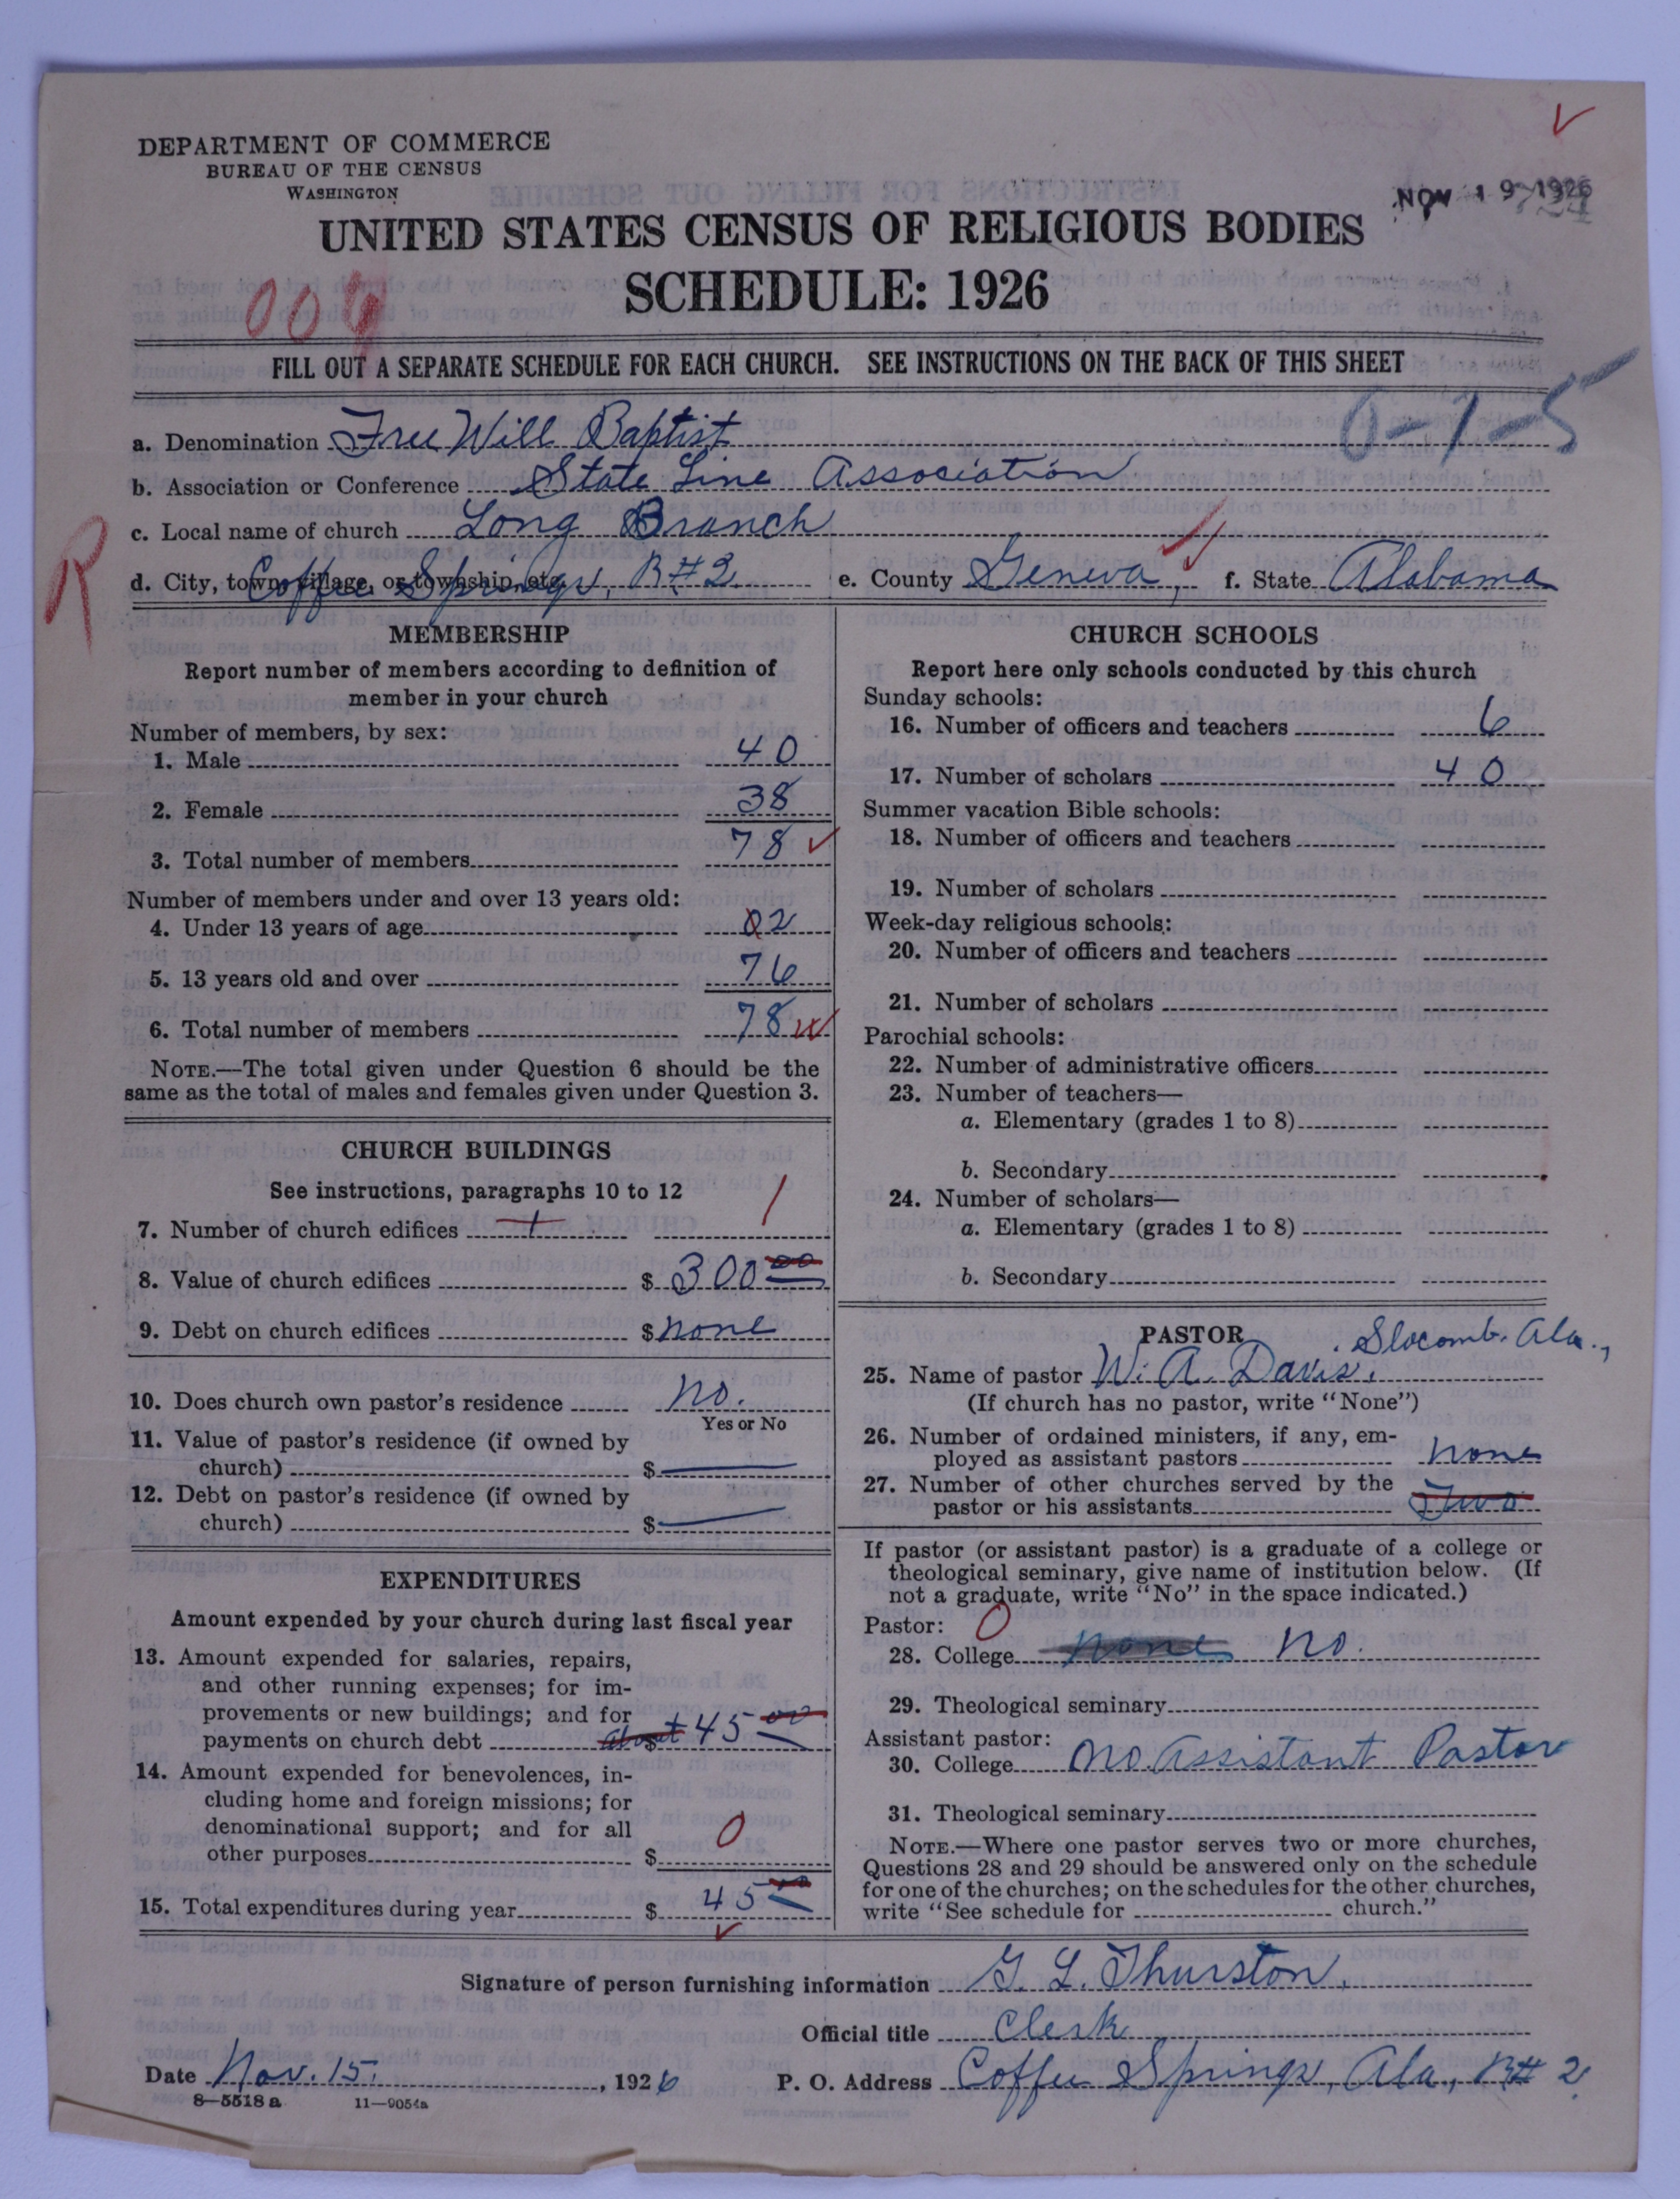 DEPARTMENT OF COMMERCE
BUREAU OF THE CENSUS
WASHINGTON
NOV 19 1926
UNITED STATES CENSUS OF RELIGIOUS BODIES
SCHEDULE: 1926
009
FILL OUT A SEPARATE SCHEDULE FOR EACH CHURCH. SEE INSTRUCTIONS ON THE BACK OF THIS SHEET
0-1-5
a. Denomination Free Will Baptist
b. Association or Conference State Line Association
c. Local name of church Long Branch
R
d. City, town, village, or township, etc. Coffee Springs, R#2. e. County Geneva, f. State Alabama
MEMBERSHIP
Report number of members according to definition of
member in your church
Number of members, by sex:
1. Male 40
2. Female 38
3. Total number of members 78
Number of members under and over 13 years old:
4. Under 13 years of age 02
5. 13 years old and over 76
6. Total number of members 78
NOTE.—The total given under Question 6 should be the
same as the total of males and females given under Question 3.
CHURCH BUILDINGS
See instructions, paragraphs 10 to 12
7. Number of church edifices 1 1
8. Value of church edifices $ 300 00
9. Debt on church edifices $ none
10. Does church own pastor's residence no.
Yes or No
11. Value of pastor's residence (if owned by
church) $
12. Debt on pastor's residence (if owned by
church) $
EXPENDITURES
Amount expended by your church during last fiscal year
13. Amount expended for salaries, repairs,
and other running expenses; for im-
provements or new buildings; and for
payments on church debt $ about 45 00
14. Amount expended for benevolences, in-
cluding home and foreign missions; for
denominational support; and for all
other purposes $ 0
15. Total expenditures during year $ 45 00
CHURCH SCHOOLS
Report here only schools conducted by this church
Sunday schools:
16. Number of officers and teachers 6
17. Number of scholars 40
Summer vacation Bible schools:
18. Number of officers and teachers
19. Number of scholars
Week-day religious schools:
20. Number of officers and teachers
21. Number of scholars
Parochial schools:
22. Number of administrative officers
23. Number of teachers—
a. Elementary (grades 1 to 8)
b. Secondary
24. Number of scholars—
a. Elementary (grades 1 to 8)
b. Secondary
PASTOR Slocomb. Ala.,
25. Name of pastor W. A. Davis.
(If church has no pastor, write "None")
26. Number of ordained ministers, if any, em-
ployed as assistant pastors none
27. Number of other churches served by the
pastor or his assistants Two
If pastor (or assistant pastor) is a graduate of a college or
theological seminary, give name of institution below. (If
not a graduate, write "No" in the space indicated.)
Pastor: 0
28. College none no.
29. Theological seminary
Assistant pastor:
30. College no assistant Pastor
31. Theological seminary
NOTE.—Where one pastor serves two or more churches,
Questions 28 and 29 should be answered only on the schedule
for one of the churches; on the schedules for the other churches,
write "See schedule for church."
Signature of person furnishing information G. L. Thurston.
Official title Clerk
Date Nov. 15. , 1926 P. O. Address Coffee Springs, Ala., R# 2.
8—5518 a 11—9054a